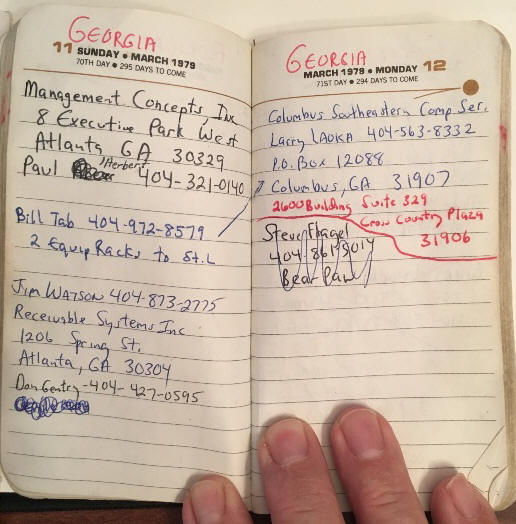 GEORGIA
11 SUNDAY • MARCH 1979
70TH DAY • 295 DAYS TO COME
Management Concepts, Inc
8 Executive Park West
Atlanta GA 30329
Paul Herbert 404-321-0140
Bill Tab 404-972-8579
2 Equip Racks to St. L
Jim Watson 404-873-2775
Receivable Systems Inc
1206 Spring St.
Atlanta, GA 30304
Don Gentry - 404-427-0595
GEORGIA
MARCH 1979 • MONDAY 12
71ST DAY • 294 DAYS TO COME
Columbus Southeastern Comp. Ser.
Larry LAOKA 404-563-8332
P.O. Box 12088
Columbus, GA 31907
2600 Building Suite 329
Cross Country Plaza
31906
Steve Flagel
404-861-5014
Bear Paw